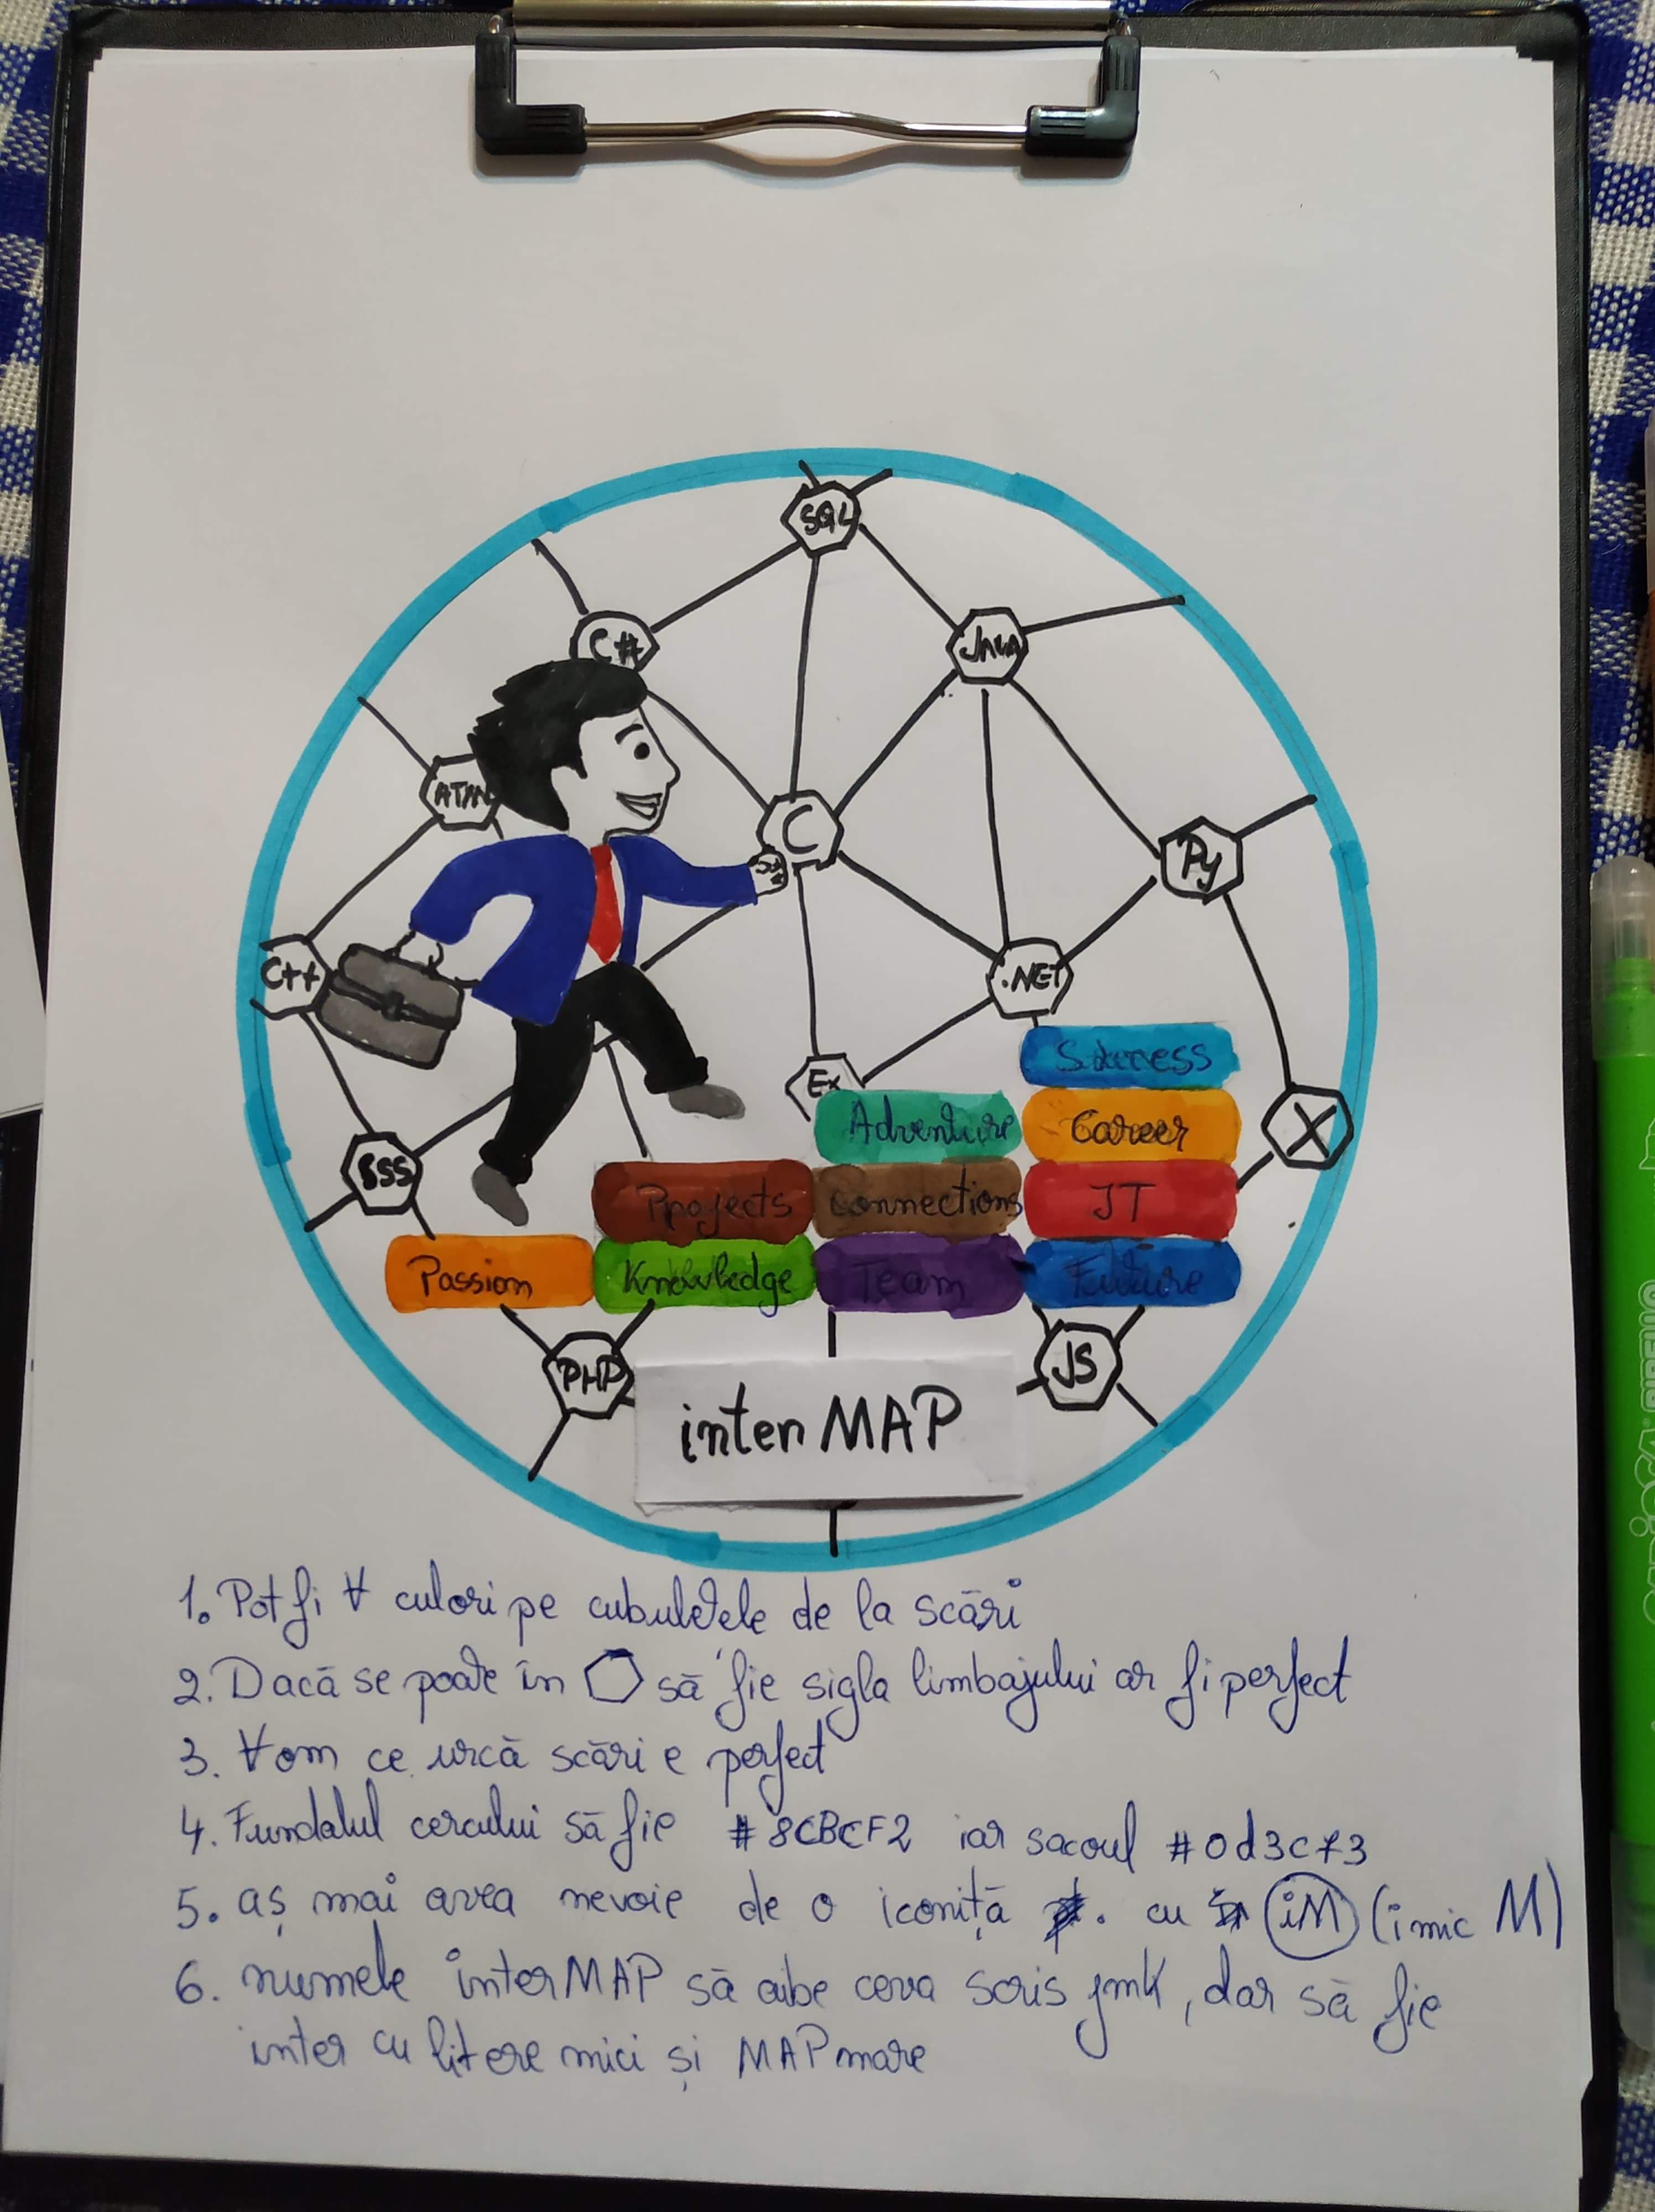 SQL
C#
JAVA
C
Py
C++
.NET
Ex
X
Success
Adventure
Career
Projects
Connections
IT
Passion
Knowledge
Team
Future
PHP
JS
inter MAP
1. Pot fi ∀ culori pe cubulețele de la scări
2. Dacă se poate în ⬡ să fie sigla limbajului ar fi perfect
3. ∀ om ce urcă scări e perfect
4. Fundalul cercului să fie #8CBCF2 iar sacoul #0d3c73
5. aș mai avea nevoie de o iconiță cu iM (i mic M)
6. numele interMAP să aibe ceva scris jmk, dar să fie
inter cu litere mici și MAP mare
CARIOCA BIRELLO